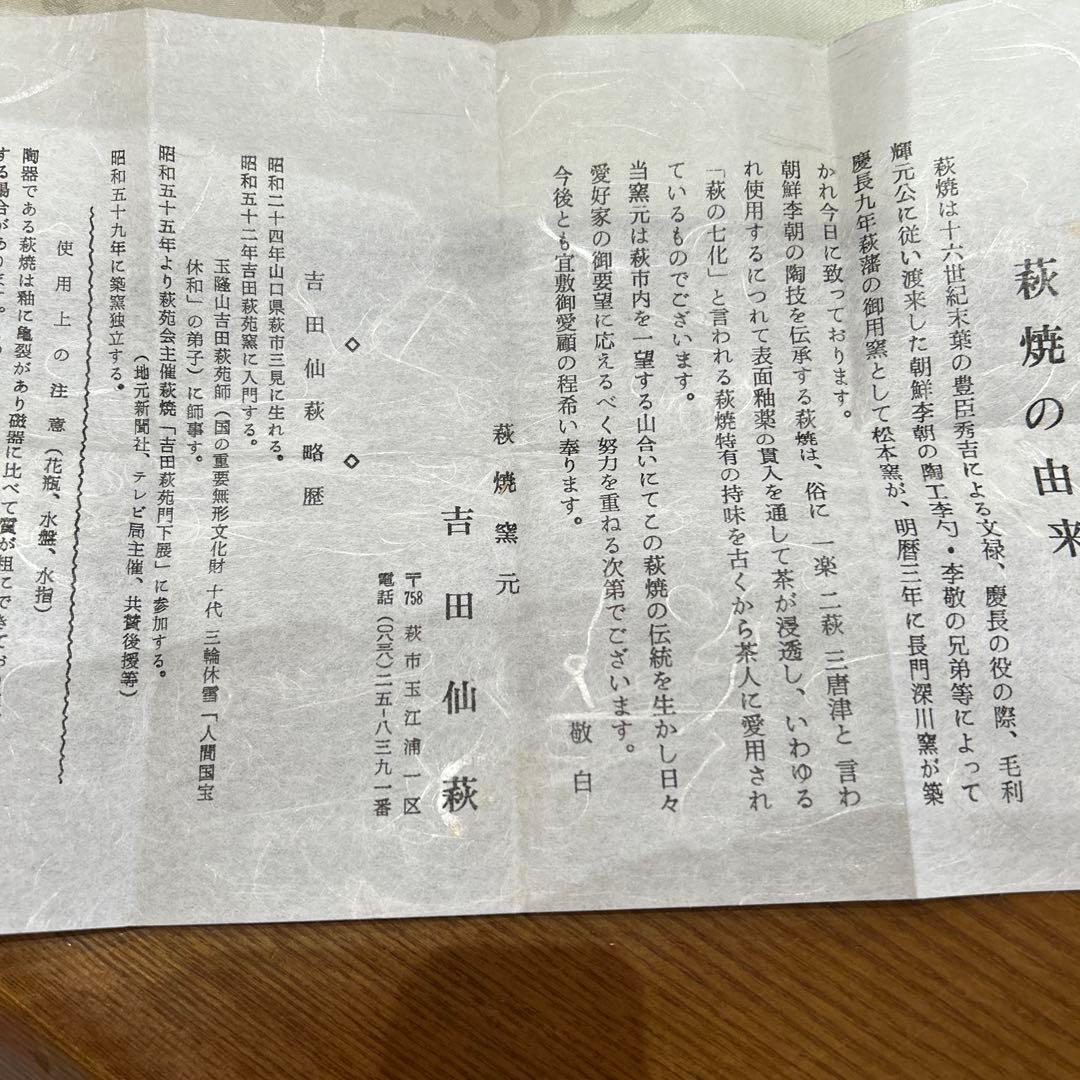 萩焼の由来
萩焼は十六世紀末葉の豊臣秀吉による文禄、慶長の役の際、毛利
輝元公に従い渡来した朝鮮李朝の陶工李勺・李敬の兄弟等によって
慶長九年萩藩の御用窯として松本窯が、明暦三年に長門深川窯が築
かれ今日に致っております。
朝鮮李朝の陶技を伝承する萩焼は、俗に 一楽 二萩 三唐津と 言わ
れ使用するにつれて表面釉薬の貫入を通して茶が浸透し、いわゆる
「萩の七化」と言われる萩焼特有の持味を古くから茶人に愛用され
ているものでございます。
当窯元は萩市内を一望する山合いにてこの萩焼の伝統を生かし日々
愛好家の御要望に応えるべく努力を重ねる次第でございます。
今後とも宜敷御愛顧の程希い奉ります。
敬白
萩焼窯元
吉田仙萩
〒758 萩市玉江浦一区
電話(〇八三八)二五-八三九一番
◇ ◇
吉田仙萩略歴
昭和二十四年山口県萩市三見に生れる。
昭和五十二年吉田萩苑窯に入門する。
玉隆山吉田萩苑師(国の重要無形文化財 十代 三輪休雪「人間国宝
休和」の弟子)に師事す。
昭和五十五年より萩苑会主催萩焼「吉田萩苑門下展」に参加する。
(地元新聞社、テレビ局主催、共賛後援等)
昭和五十九年に築窯独立する。
使用上の注意(花瓶、水盤、水指)
陶器である萩焼は釉に亀裂があり磁器に比べて質が粗にできてお
する場合があります。